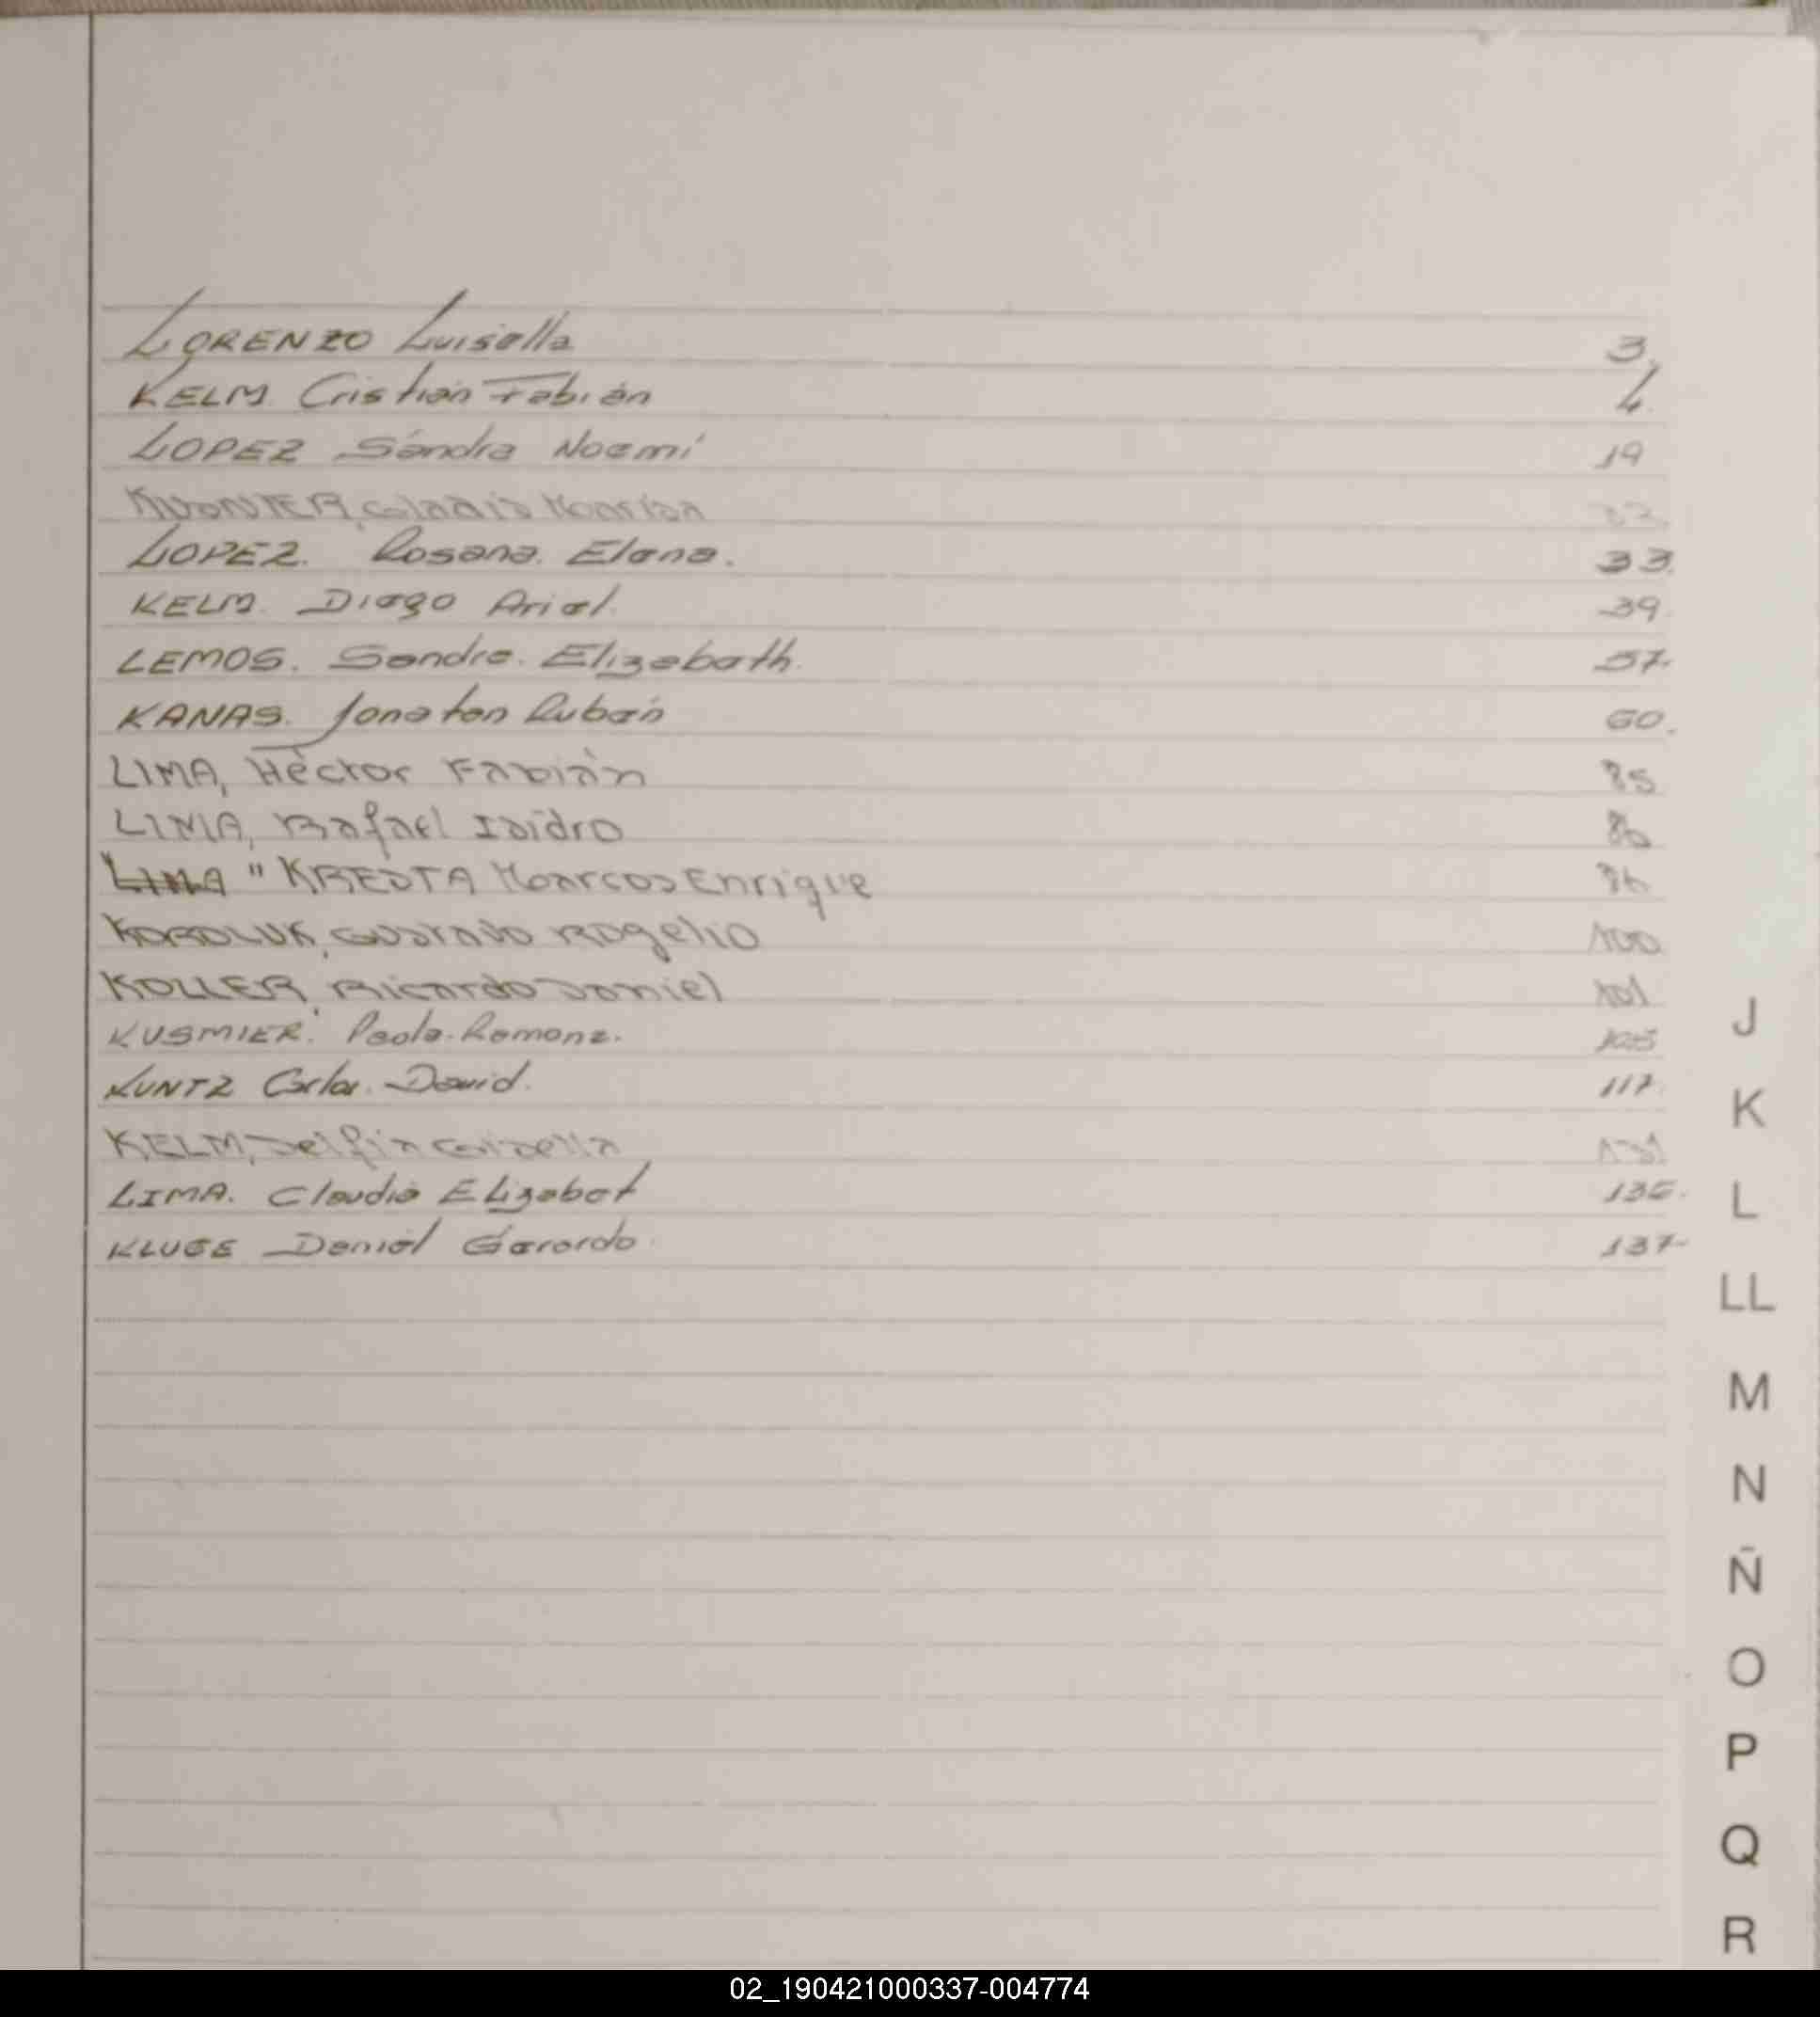 LORENZO Luisella 3.
KELM. Cristian Fabián 4.
LOPEZ Sandra Noemí 19
Gladis
LOPEZ. Rosana. Elena. 33.
KELM. Diego Ariel. 39.
LEMOS. Sandra. Elizabeth. 57.
KANAS. Jonatan Rubén 60.
LIMA, Héctor Fabián
LIMA, Rafael Isidro
LIMA " KRESTA Marcos Enrique
KOROLUK, Gustavo Rogelio 100
KOLLER, Ricardo Daniel 101
KUSMIER. Paola. Ramona. 105
KUNTZ Carlos. David. 117.
KELM, Delfia Griselda
LIMA. Claudia Elizabet 136.
KLUGE Daniel Gerardo. 137-
J
K
L
LL
M
N
Ñ
O
P
Q
R
02_190421000337-004774